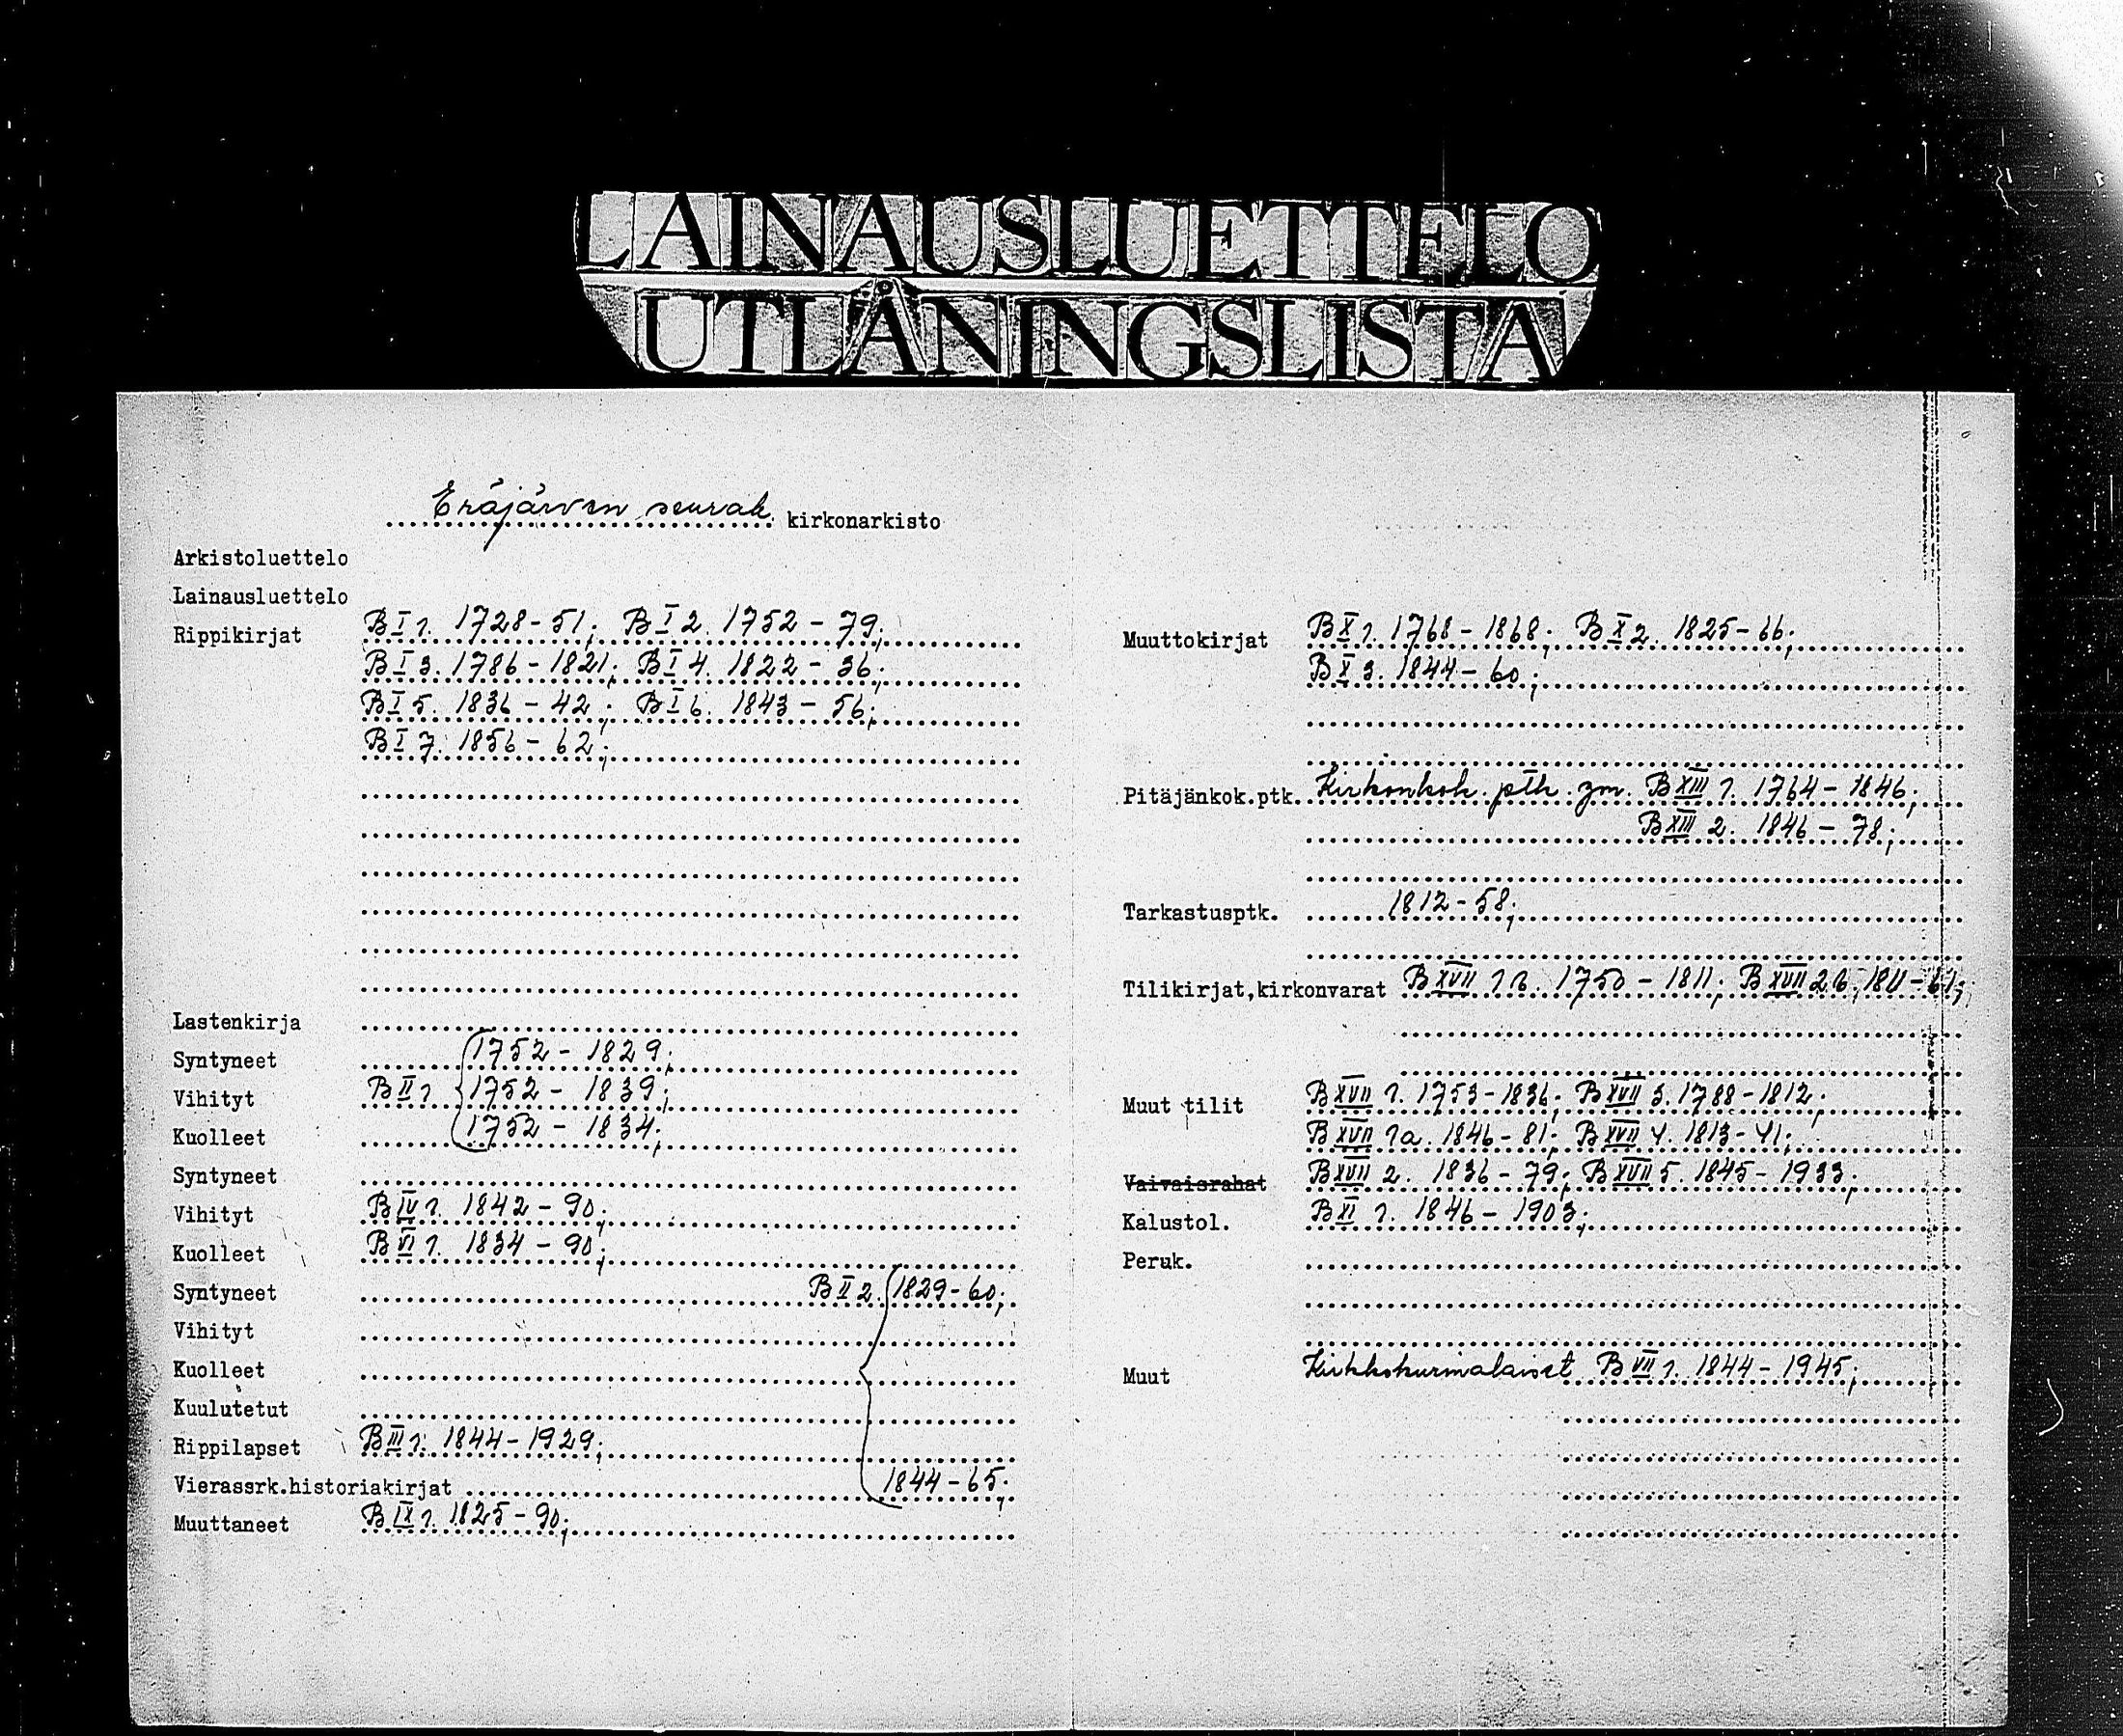 LAINAUSLUETTELO
UTLÅNINGSLISTA
Eräjärven seurak. kirkonarkisto
Arkistoluettelo
Lainausluettelo
Rippikirjat B I 1. 1728-51; B I 2. 1752-79;
B I 3. 1786-1821; B I 4. 1822-36;
B I 5. 1836-42; B I 6. 1843-56;
B I 7. 1856-62;
Lastenkirja
Syntyneet 1752-1829;
Vihityt B II 1 1752-1839;
Kuolleet 1752-1834;
Syntyneet
Vihityt B IV 1. 1842-90;
Kuolleet B VI 1. 1834-90;
Syntyneet B II 2. 1829-60;
Vihityt
Kuolleet
Kuulutetut
Rippilapset B III 1. 1844-1929;
Vierassrk.historiakirjat 1844-65;
Muuttaneet B IX 1. 1825-90;
Muuttokirjat B X 1. 1768-1868; B X 2. 1825-66;
B X 3. 1844-60;
Pitäjänkok.ptk. Kirkonkok. ptk. ym. B XIII 1. 1764-1846;
B XIII 2. 1846-78;
Tarkastusptk. 1812-58;
Tilikirjat,kirkonvarat B XVII 1b. 1750-1811; B XVII 2b. 1811-61;
Muut tilit B XVII 1. 1753-1836; B XVII 3. 1788-1812;
B XVII 1a. 1846-81; B XVII 4. 1813-41;
Vaivaisrahat B XVII 2. 1836-79; B XVII 5. 1845-1933;
Kalustol. B XI 1. 1846-1903;
Peruk.
Muut Kirkkokurinalaiset B VII 1. 1844-1945;